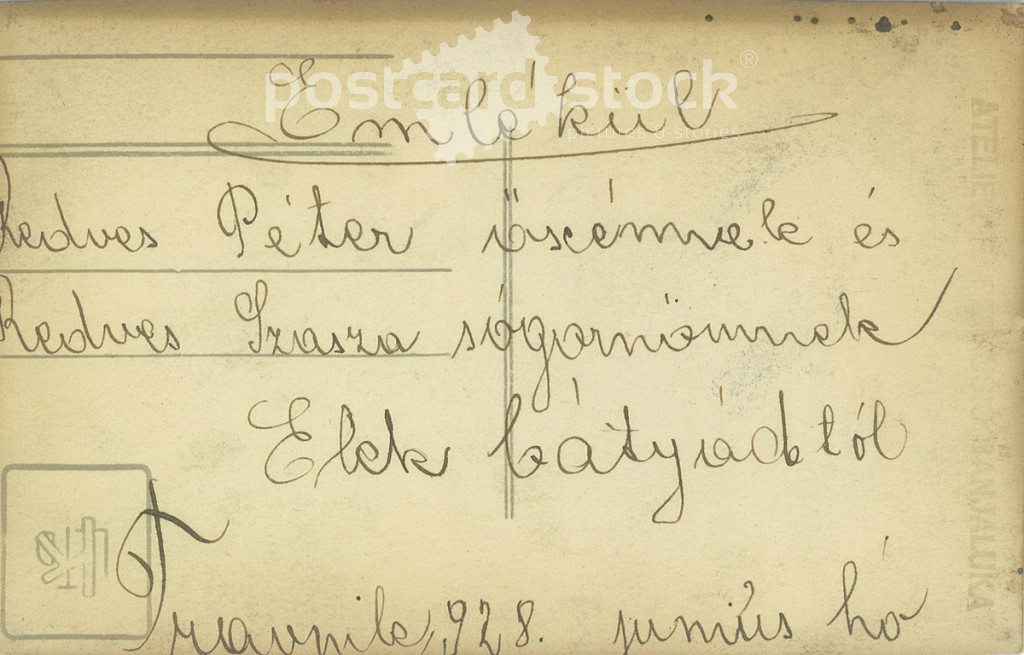 postcardstock®
Emlékül
Kedves Péter öscémnek és
Kedves Szasza sógornőmnek
Elek bátyádtól
Travnik, 928. junius hó
ATELIE
BANJALUKA